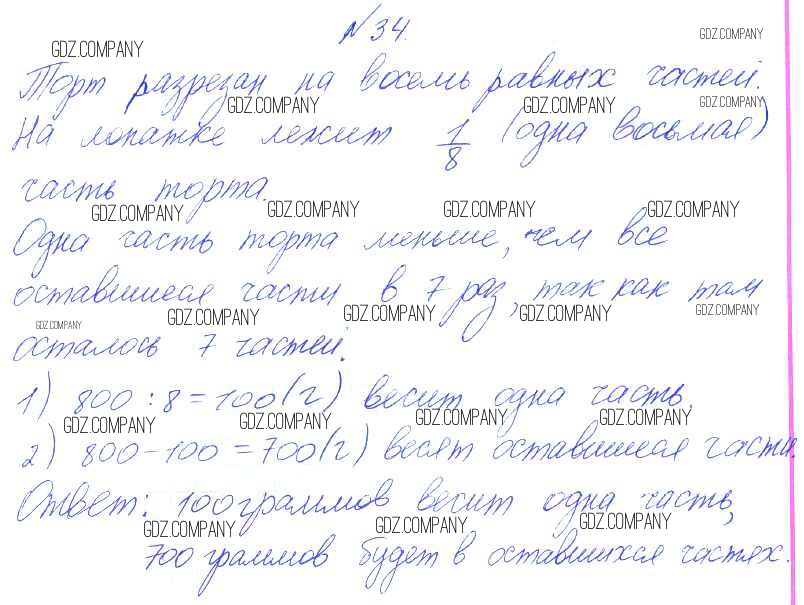 №34.
Торт разрезан на восемь равных частей.
На лопатке лежит 1/8 (одна восьмая)
часть торта.
Одна часть торта меньше, чем все
оставшиеся части в 7 раз, так как там
осталось 7 частей.
1) 800 : 8 = 100 (г) весит одна часть.
2) 800 - 100 = 700 (г) весят оставшиеся части.
Ответ: 100 граммов весит одна часть,
700 граммов будет в оставшихся частях.
GDZ.COMPANY GDZ.COMPANY
GDZ.COMPANY GDZ.COMPANY GDZ.COMPANY
GDZ.COMPANY GDZ.COMPANY GDZ.COMPANY GDZ.COMPANY
GDZ.COMPANY GDZ.COMPANY GDZ.COMPANY GDZ.COMPANY GDZ.COMPANY
GDZ.COMPANY GDZ.COMPANY GDZ.COMPANY GDZ.COMPANY
GDZ.COMPANY GDZ.COMPANY GDZ.COMPANY